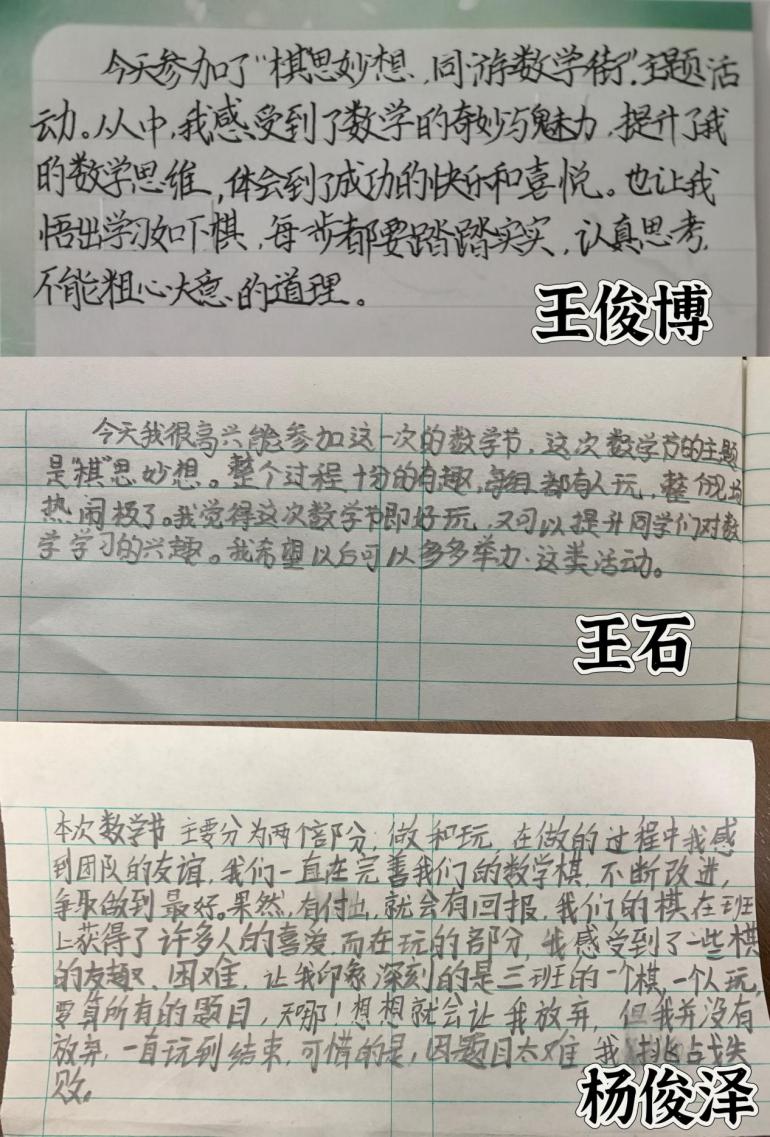 今天参加了"棋思妙想,同游数学街",主题活
动。从中,我感受到了数学的奇妙与魅力,提升了我
的数学思维,体会到了成功的快乐和喜悦。也让我
悟出学习如下棋,每一步都要踏踏实实,认真思考,
不能粗心大意的道理。
王俊博
今天我很高兴能参加这一次的数学节,这次数学节的主题
是"棋"思妙想。整个过程十分的有趣,每组都有人玩,整个现场
热闹极了。我觉得这次数学节即好玩,又可以提升同学们对数
学学习的兴趣。我希望以后可以多多举办这类活动。
王石
本次数学节主要分为两个部分,做和玩,在做的过程中我感
到团队的友谊,我们一直在完善我们的数学棋,不断改进,
争取做到最好。果然,有付出,就会有回报,我们的棋在班
上获得了许多人的喜爱,而在玩的部分,我感受到了一些棋
的有趣、困难,让我印象深刻的是三班的一个棋,一个人玩,
要算所有的题目,天哪!想想就会让我放弃,但我并没有
放弃,一直玩到结束,可惜的是,因题目太难,我挑战失
败。
杨俊泽